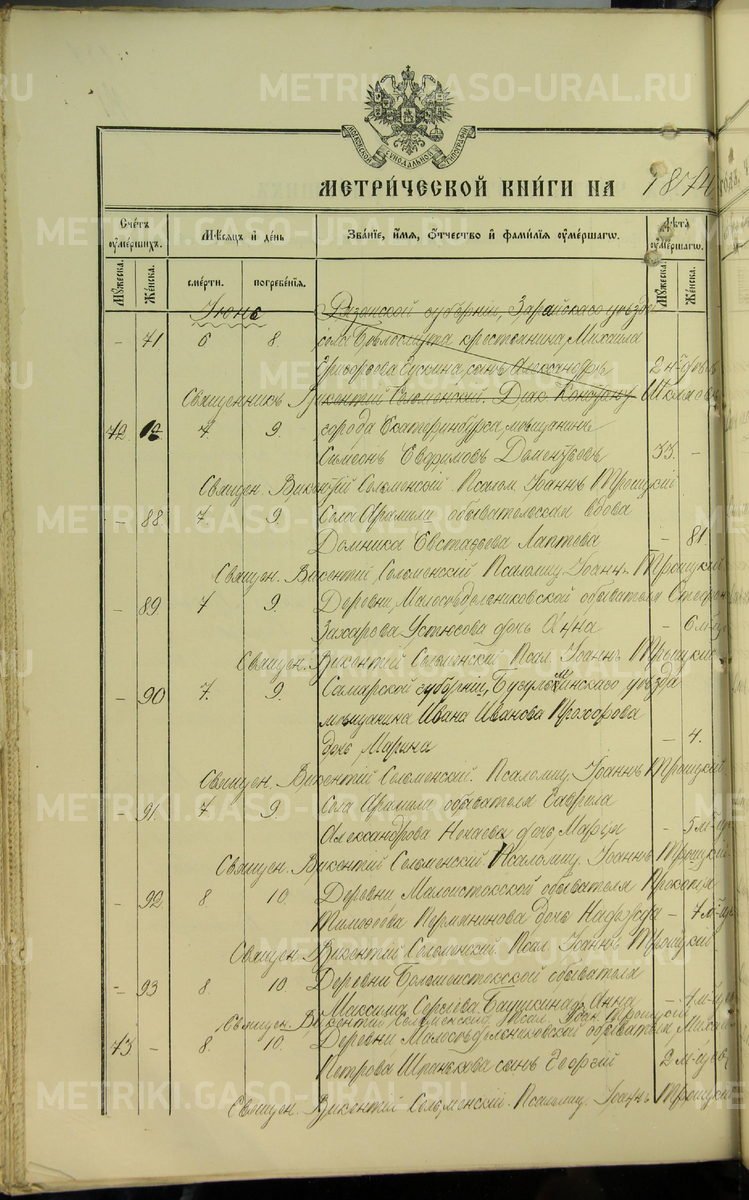 МОСКОВСКОЙ СѴНОДАЛЬНОЙ ТИПОГРАФІИ
МЕТРИ́ЧЕСКОЙ КНИ́ГИ НА 1874
Счётъ оумершихъ. Мѣсяцъ и день Зва́ніе, и́мя, о́тчество и фами́лія оуме́ршагѡ. Лѣта оуме́ршагѡ.
Мужеска. Женска. сме́рти. погребе́нія. Мужеска. Женска.
Іюнь Рязанской губерніи, Зарайскаго уѣзда
– 71 6 8 села крестьянина Михаила
Григорьева сынъ Александръ 2 нѣдѣль
Священникъ Викентій Соломенскій. Діак.
72 7 9. города Екатеринбурга, мѣщанинъ
Симеонъ Евфимовъ 33. –
Священ. Викентій Соломенскій Псалом. Іоаннъ Троицкій
– 88. 7. 9. Села Арамили обывательская вдова
Домника Евстафьева Лаптева – 81
Священ. Викентій Соломенскій Псаломщ. Іоаннъ Троицкій
– 89 7 9. Деревни Малосѣдельниковской обывателя Стефана
Захарова Устюгова дочь Анна – 6 м-цъ
Священ. Викентій Соломенскій Псал. Іоаннъ Троицкій
– 90 7. 9. Самарской губерніи, Бугульминскаго уѣзда
мѣщанина Ивана Иванова Прохорова
дочь Марина – 4.
Священ. Викентій Соломенскій. Псаломщ. Іоаннъ Троицкій
– 91. 7 9. Села Арамили обывателя Гаврила
Александрова Нехаева дочь Марія – 5 м-цъ
Священ. Викентій Соломенскій Псаломщ. Іоаннъ Троицкій
– 92 8 10. Деревни Малоистокской обывателя Прокопія
Тимофеева Пермянинова дочь Надежда – 7 м-цъ
Священ. Викентій Соломенскій Псал. Іоаннъ Троицкій
– 93 8 10. Деревни Большеистокской обывателя
Максима Сергѣева Анна – 7 м-цъ
Священ. Викентій Соломенскій Псал. Іоан. Троицкій
73 – 8 10. Деревни Малосѣдельниковской обывателя Михаила
Петрова сынъ Георгій 2 м-цовъ
Священ. Викентій Соломенскій. Псаломщ. Іоаннъ Троицкій
METRIKI.GASO-URAL.RU